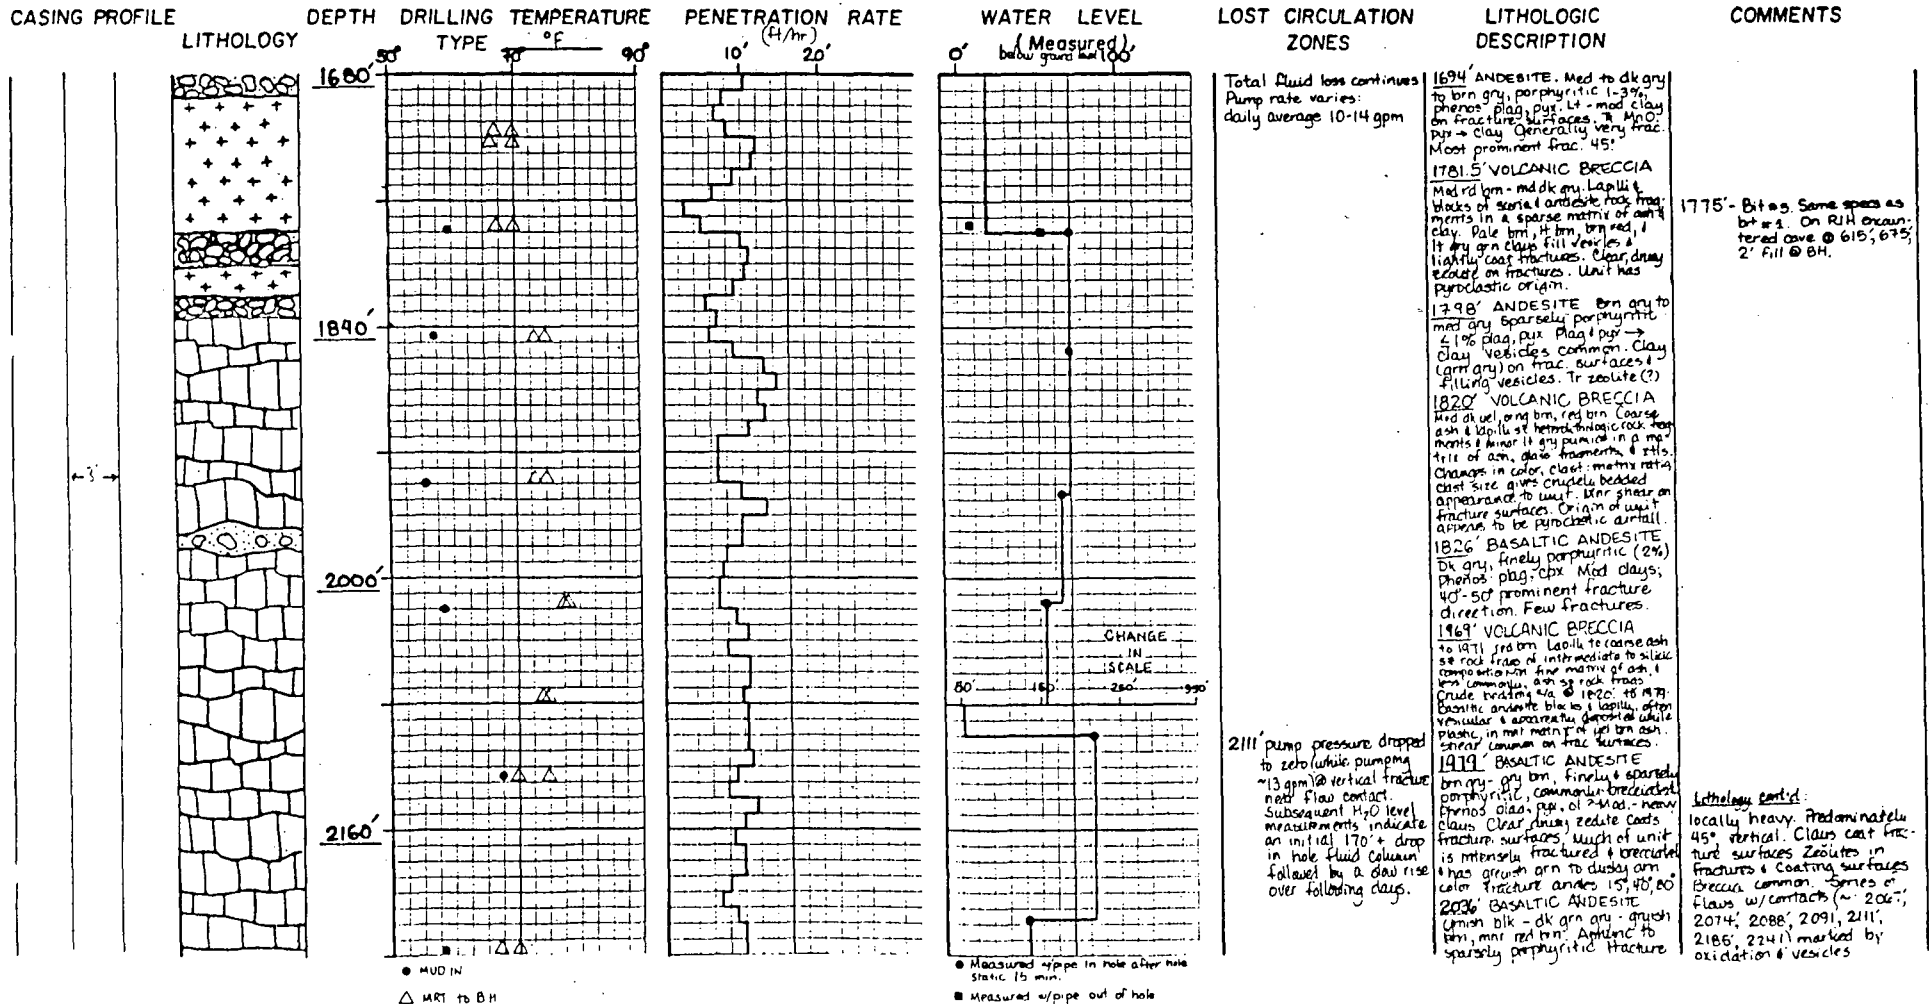 CASING PROFILE
LITHOLOGY
DEPTH
DRILLING TEMPERATURE
TYPE °F
50° 70° 90°
PENETRATION RATE
(ft/hr)
10' 20'
WATER LEVEL
(Measured)
below ground level
0' 100'
LOST CIRCULATION
ZONES
LITHOLOGIC
DESCRIPTION
COMMENTS
3'
1680'
1840'
2000'
2160'
● MUD IN
△ MRT to BH
CHANGE
IN
SCALE
80'
● Measured w/pipe in hole after hole
static 15 min.
■ Measured w/pipe out of hole
Total fluid loss continues
Pump rate varies:
daily average 10-14 gpm
2111' pump pressure dropped
to zero (while pumping
~13 gpm) @ vertical fracture
near flow contact.
Subsequent H2O level
measurements indicate
an initial 170' + drop
in hole fluid column
followed by a slow rise
over following days.
1694' ANDESITE. Med to dk gry
to brn gry, porphyritic 1-3%,
phenos plag, pyx. Lt - mod clay
on fracture surfaces. Tr MnO.
pyx → clay Generally very frac.
Most prominent frac. 45°
1781.5' VOLCANIC BRECCIA
Med rd brn - md dk gry. Lapilli &
blocks of scoria & andesite rock frag-
ments in a sparse matrix of ash &
clay. Pale brn, lt brn, brn red, &
lt gry grn clays fill vesicles &
lightly coat fractures. Clear, drusy
zeolite on fractures. Unit has
pyroclastic origin.
1798' ANDESITE Brn gry to
med gry sparsely porphyritic
<1% plag, pyx Plag & pyx →
clay Vesicles common. Clay
(grn gry) on frac. surfaces &
filling vesicles. Tr zeolite (?)
1820' VOLCANIC BRECCIA
Mod dk yel, orng brn, red brn Coarse
ash & lapilli sz heterolithologic rock frag
ments & minor lt gry pumice in a ma-
trix of ash, glass fragments, & xtls.
Changes in color, clast:matrix ratio,
clast size gives crudely bedded
appearance to unit. Mnr shear on
fracture surfaces. Origin of unit
appears to be pyroclastic airfall.
1826' BASALTIC ANDESITE
Dk gry, finely porphyritic (2%)
phenos: plag, cpx Mod clays;
40°-50° prominent fracture
direction. Few fractures.
1969' VOLCANIC BRECCIA
to 1971 red brn Lapilli to coarse ash
sz rock frags of intermediate to silicic
composition in fine matrix of ash, &
less commonly, ash sz rock frags
Crude bedding a/a @ 1820'. to 1979.
Basaltic andesite blocks & lapilli, often
vesicular & apparently deposited while
plastic, in mnr matrix of yel brn ash.
Shear common on frac surfaces.
1979' BASALTIC ANDESITE
brn gry - gry brn, finely & sparsely
porphyritic, commonly brecciated
Phenos plag, pyx, ol? Mod.- heavy
clays Clear drusy zeolite coats
fracture surfaces, Much of unit
is intensely fractured & brecciated
& has greyish grn to dusky grn
color Fracture angles 15°, 40°, 80°
2036' BASALTIC ANDESITE
Grnish blk - dk grn gry - gryish
brn, mnr red brn. Aphanic to
sparsely porphyritic Fracture
1775' - Bit #3. Same specs as
bit #2. On RIH encoun-
tered cave @ 615', 675',
2' fill @ BH.
Lithology cont'd:
locally heavy. Predominately
45° vertical. Clays coat frac-
ture surfaces Zeolites in
fractures & coating surfaces
Breccia common. Series of
flows w/contacts (~
2074', 2088', 2091, 2111',
2185', 2241') marked by
oxidation & vesicles